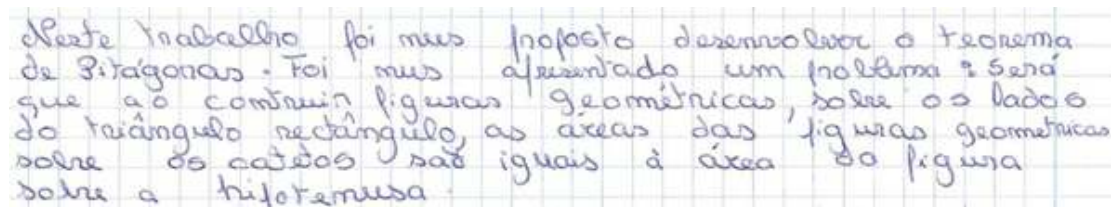 Neste trabalho foi nus proposto desenvolver o teorema
de Pitágoras. Foi nus apresentado um problema : Será
que ao contruir figuras geométricas, sobre os lados
do triângulo rectângulo, as áreas das figuras geometricas
sobre os catetos são iguais à área da figura
sobre a hipotenusa.